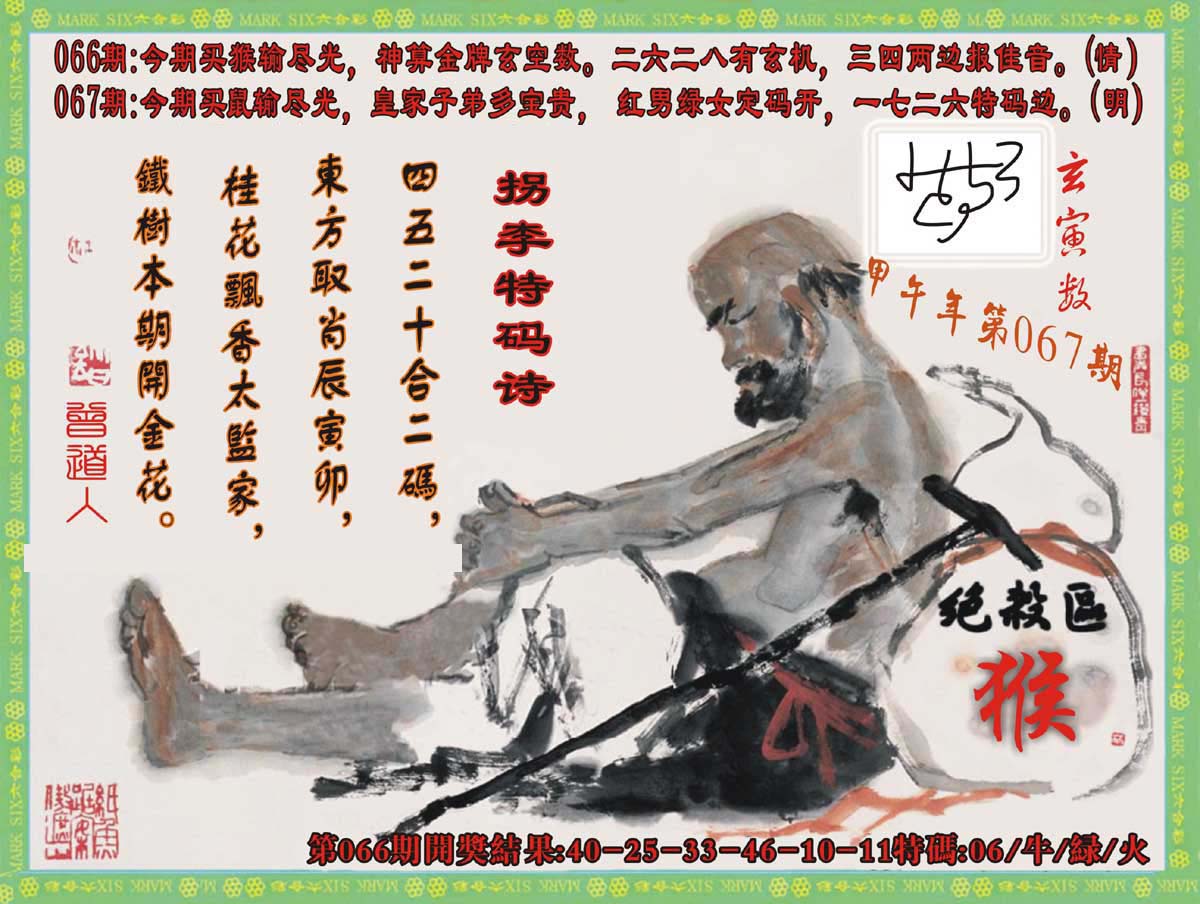 MARK SIX六合彩
066期:今期买猴输尽光，神算金牌玄空数。二六二八有玄机，三四两边报佳音。(情)
067期:今期买鼠输尽光，皇家子弟多宝贵， 红男绿女定码开，一七二六特码边。(明)
玄寅数
甲午年第067期
拐李特码诗
四五二十合二碼，
東方取肖辰寅卯，
桂花飄香太監家，
鐵樹本期開金花。
曾道人
绝殺區
猴
第066期開獎結果:40-25-33-46-10-11特碼:06/牛/緑/火